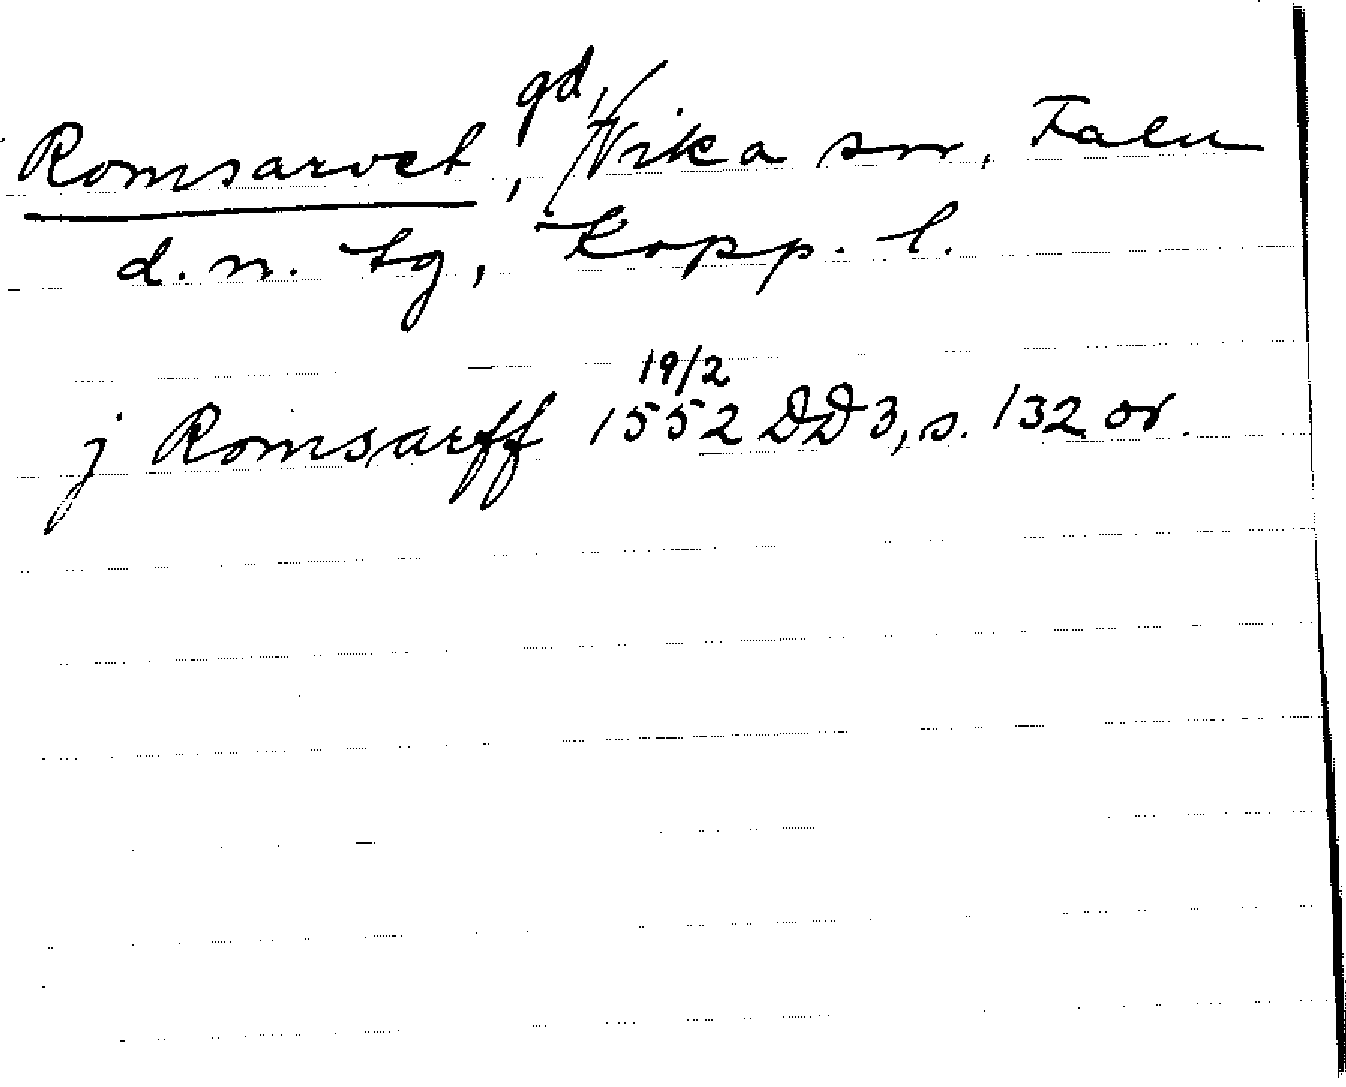 Romsarvet, gd, Vika sn, Falu
d. n. tg, Kopp. l.
j Romsarff 19/2 1552 DD 3, s. 132 or.